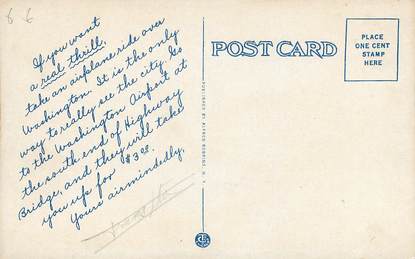 6 6
If you want
a real thrill,
take an airplane ride over
Washington. It is the only
way to really see the city. Go
to the Washington Airport at
the south end of Highway
Bridge, and they will take
you up for $3.00.
Yours airmindedly,
POST CARD
PLACE
ONE CENT
STAMP
HERE
PUBLISHED BY ALFRED
N. Y.